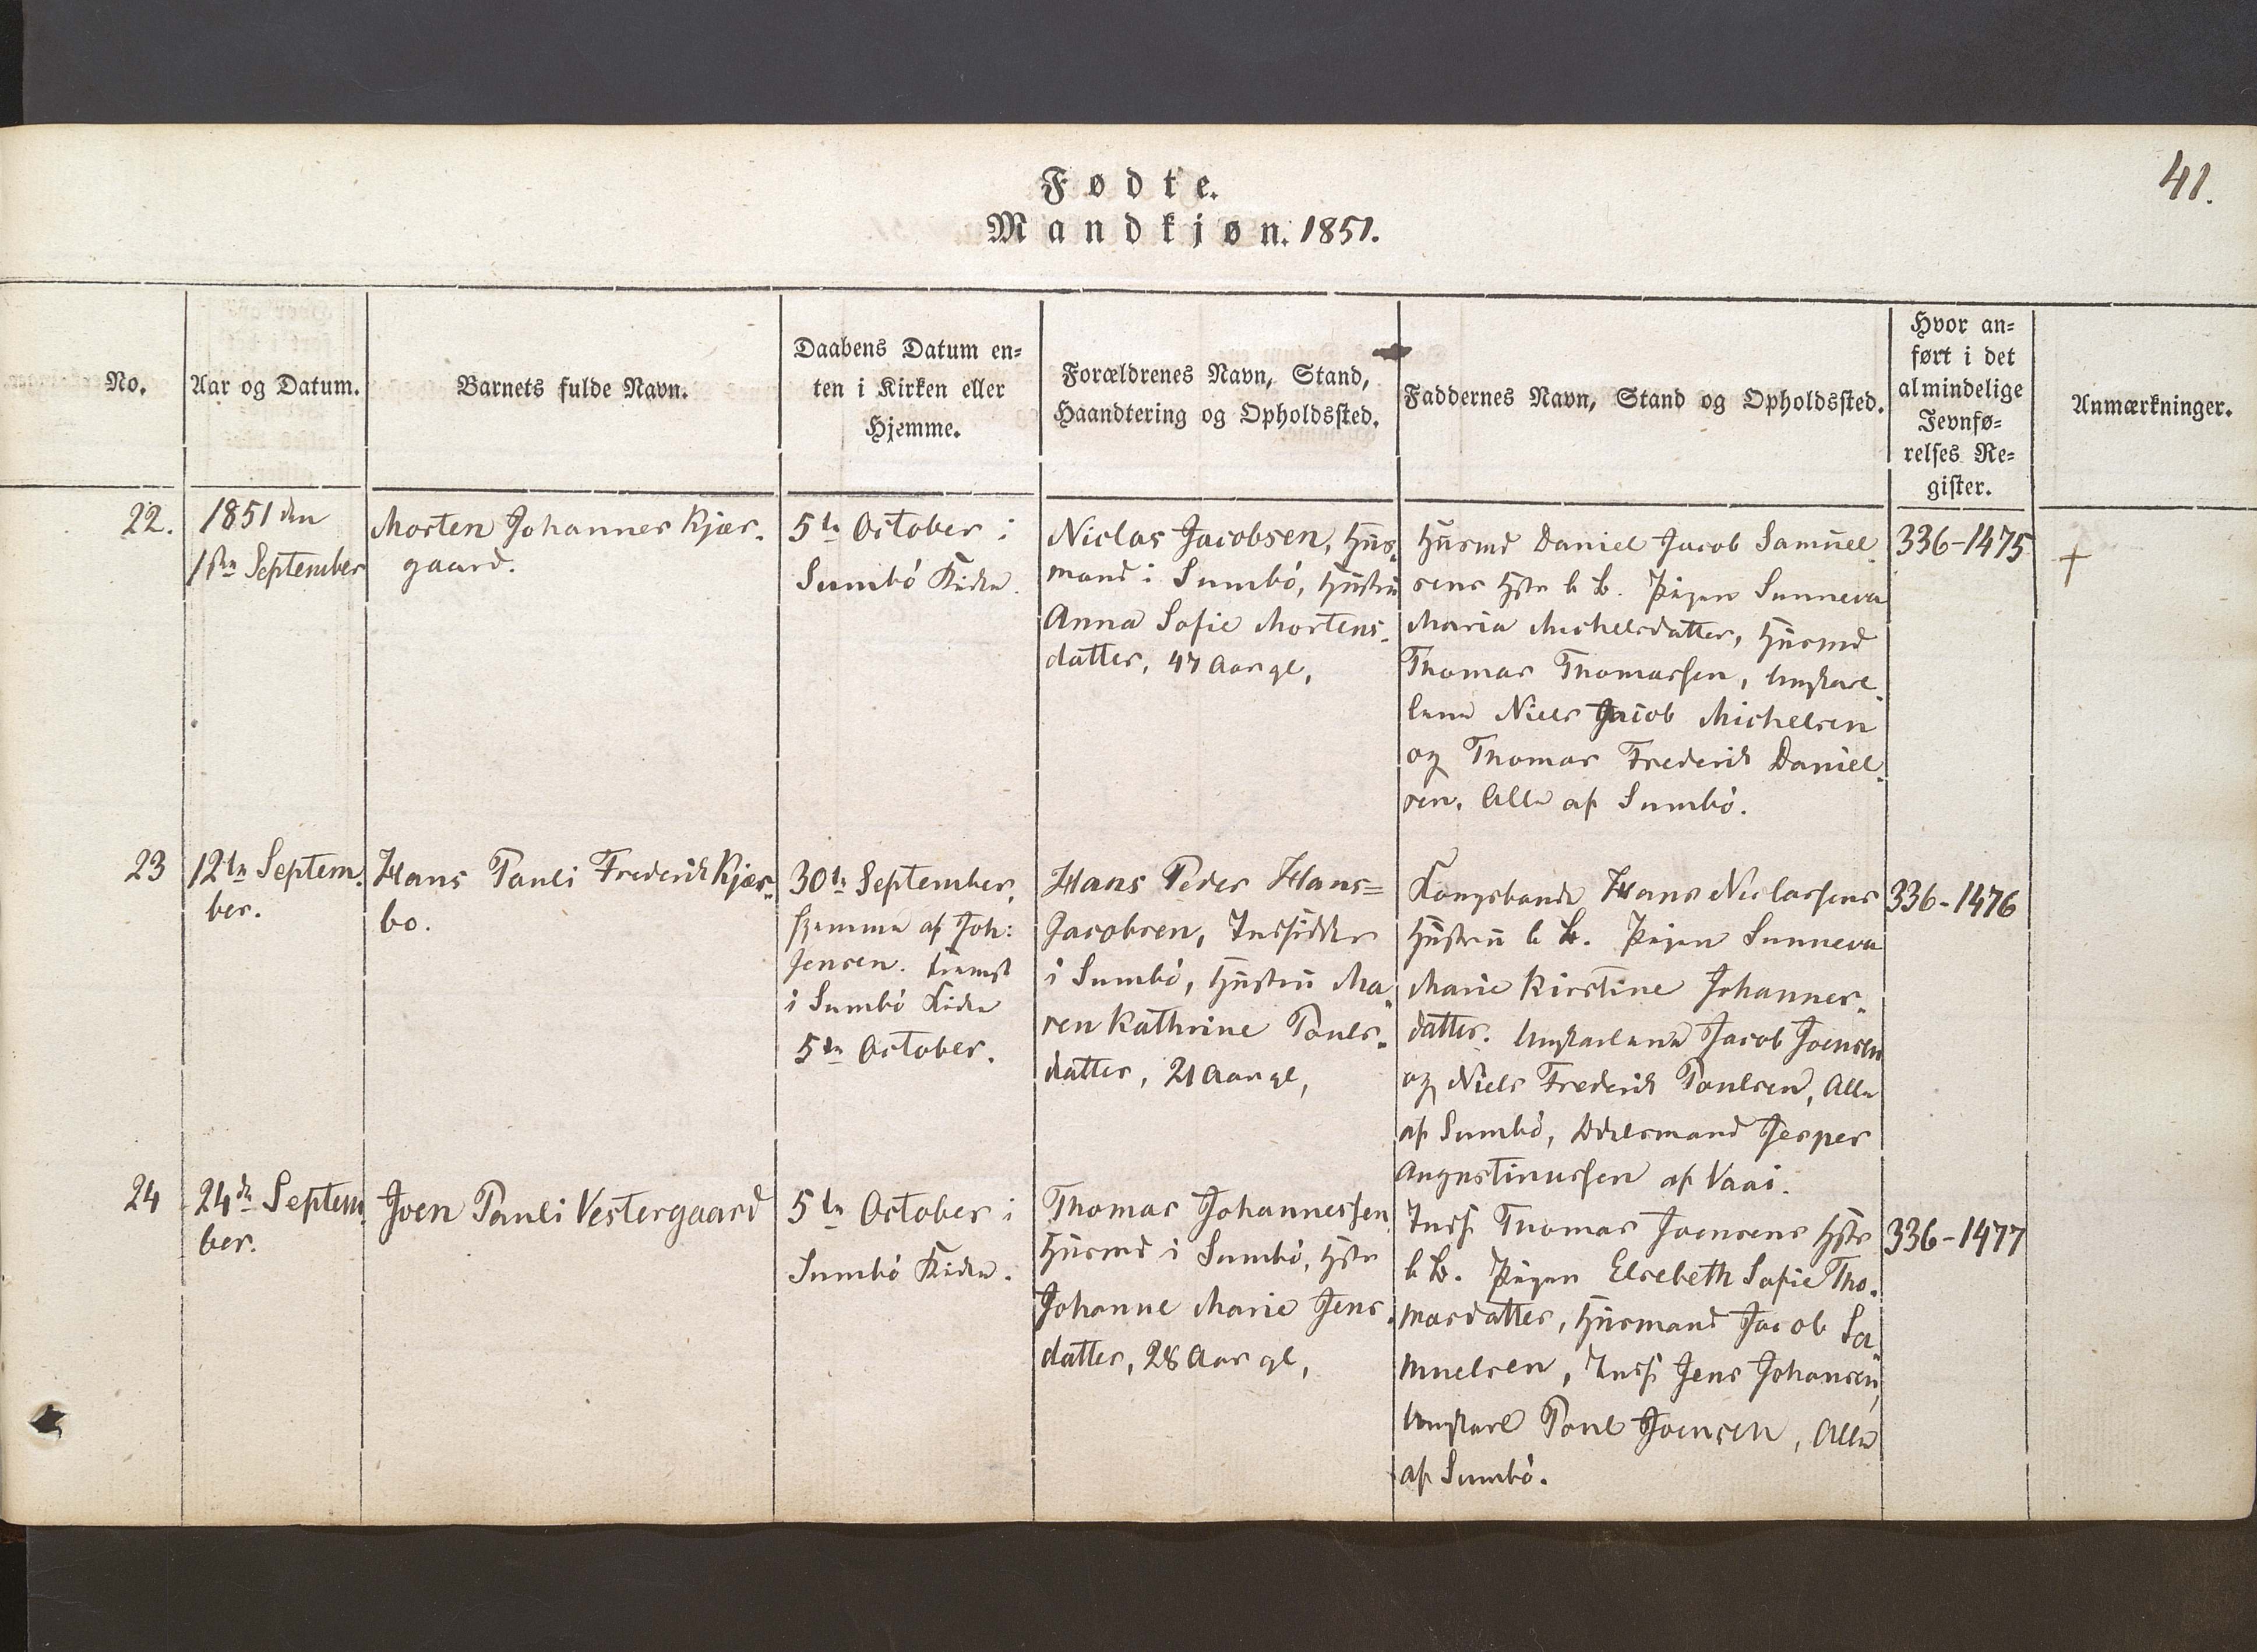 41.
Fødte.
Mandkjøn. 1851.
No.
Aar og Datum.
Barnets fulde Navn.
Daabens Datum en=
ten i Kirken eller
Hjemme.
Forældrenes Navn, Stand,
Haandtering og Opholdssted.
Faddernes Navn, Stand og Opholdssted.
Hvor an=
ført i det
almindelige
Jevnfø=
relses Re=
gister.
Anmærkninger.
22.
1851 den
1ste September
Morten Johannes Kjær-
gaard.
5te October i
Sumbö Kirke.
Niclas Jacobsen, Huus-
mand i Sumbö, Hustru
Anna Sofie Mortens-
datter, 47 Aar gl,
Huusmd Daniel Jacob Samuel
sens Hstr b B. Pigen Sunneva
Maria Michelsdatter, Huusmd
Thomas Thomassen, Ungkarl-
lene Niels Jacob Michelsen
og Thomas Frederik Daniel-
sen. Alle af Sumbö.
336-1475
+
23
12te Septem-
ber.
Hans Pauli Frederik Kjær-
bo.
30te September,
hjemme af Joh:
Jensen. fremst
i Sumbö Kirke
5te October.
Hans Peder Hans=
Jacobsen, Indsidder
i Sumbö, Hustru Ma-
ren Kathrine Pouls-
datter, 21 Aar gl,
Kongsbonde Hans Niclassens
Hustru b B. Pigen Sunneva
Marie Kirstine Johannes-
datter. Ungkarlene Jacob Joensen
og Niels Frederik Poulsen, Alle
af Sumbö, Odelsmand Jesper
Augustinussen af Vaai.
336-1476
24
24de Septem-
ber.
Joen Pauli Vestergaard
5te October i
Sumbö Kirke.
Thomas Johannessen
Huusmd i Sumbö, Hstr
Johanne Marie Jens-
datter, 28 Aar gl,
Inds. Thomas Joensens Hstr
b B. Pigen Elsebeth Sofie Tho-
masdatter, Huusmand Jacob Sa-
muelsen, Inds. Jens Johansen,
Ungkarl Poul Joensen, Alle
af Sumbö.
336-1477